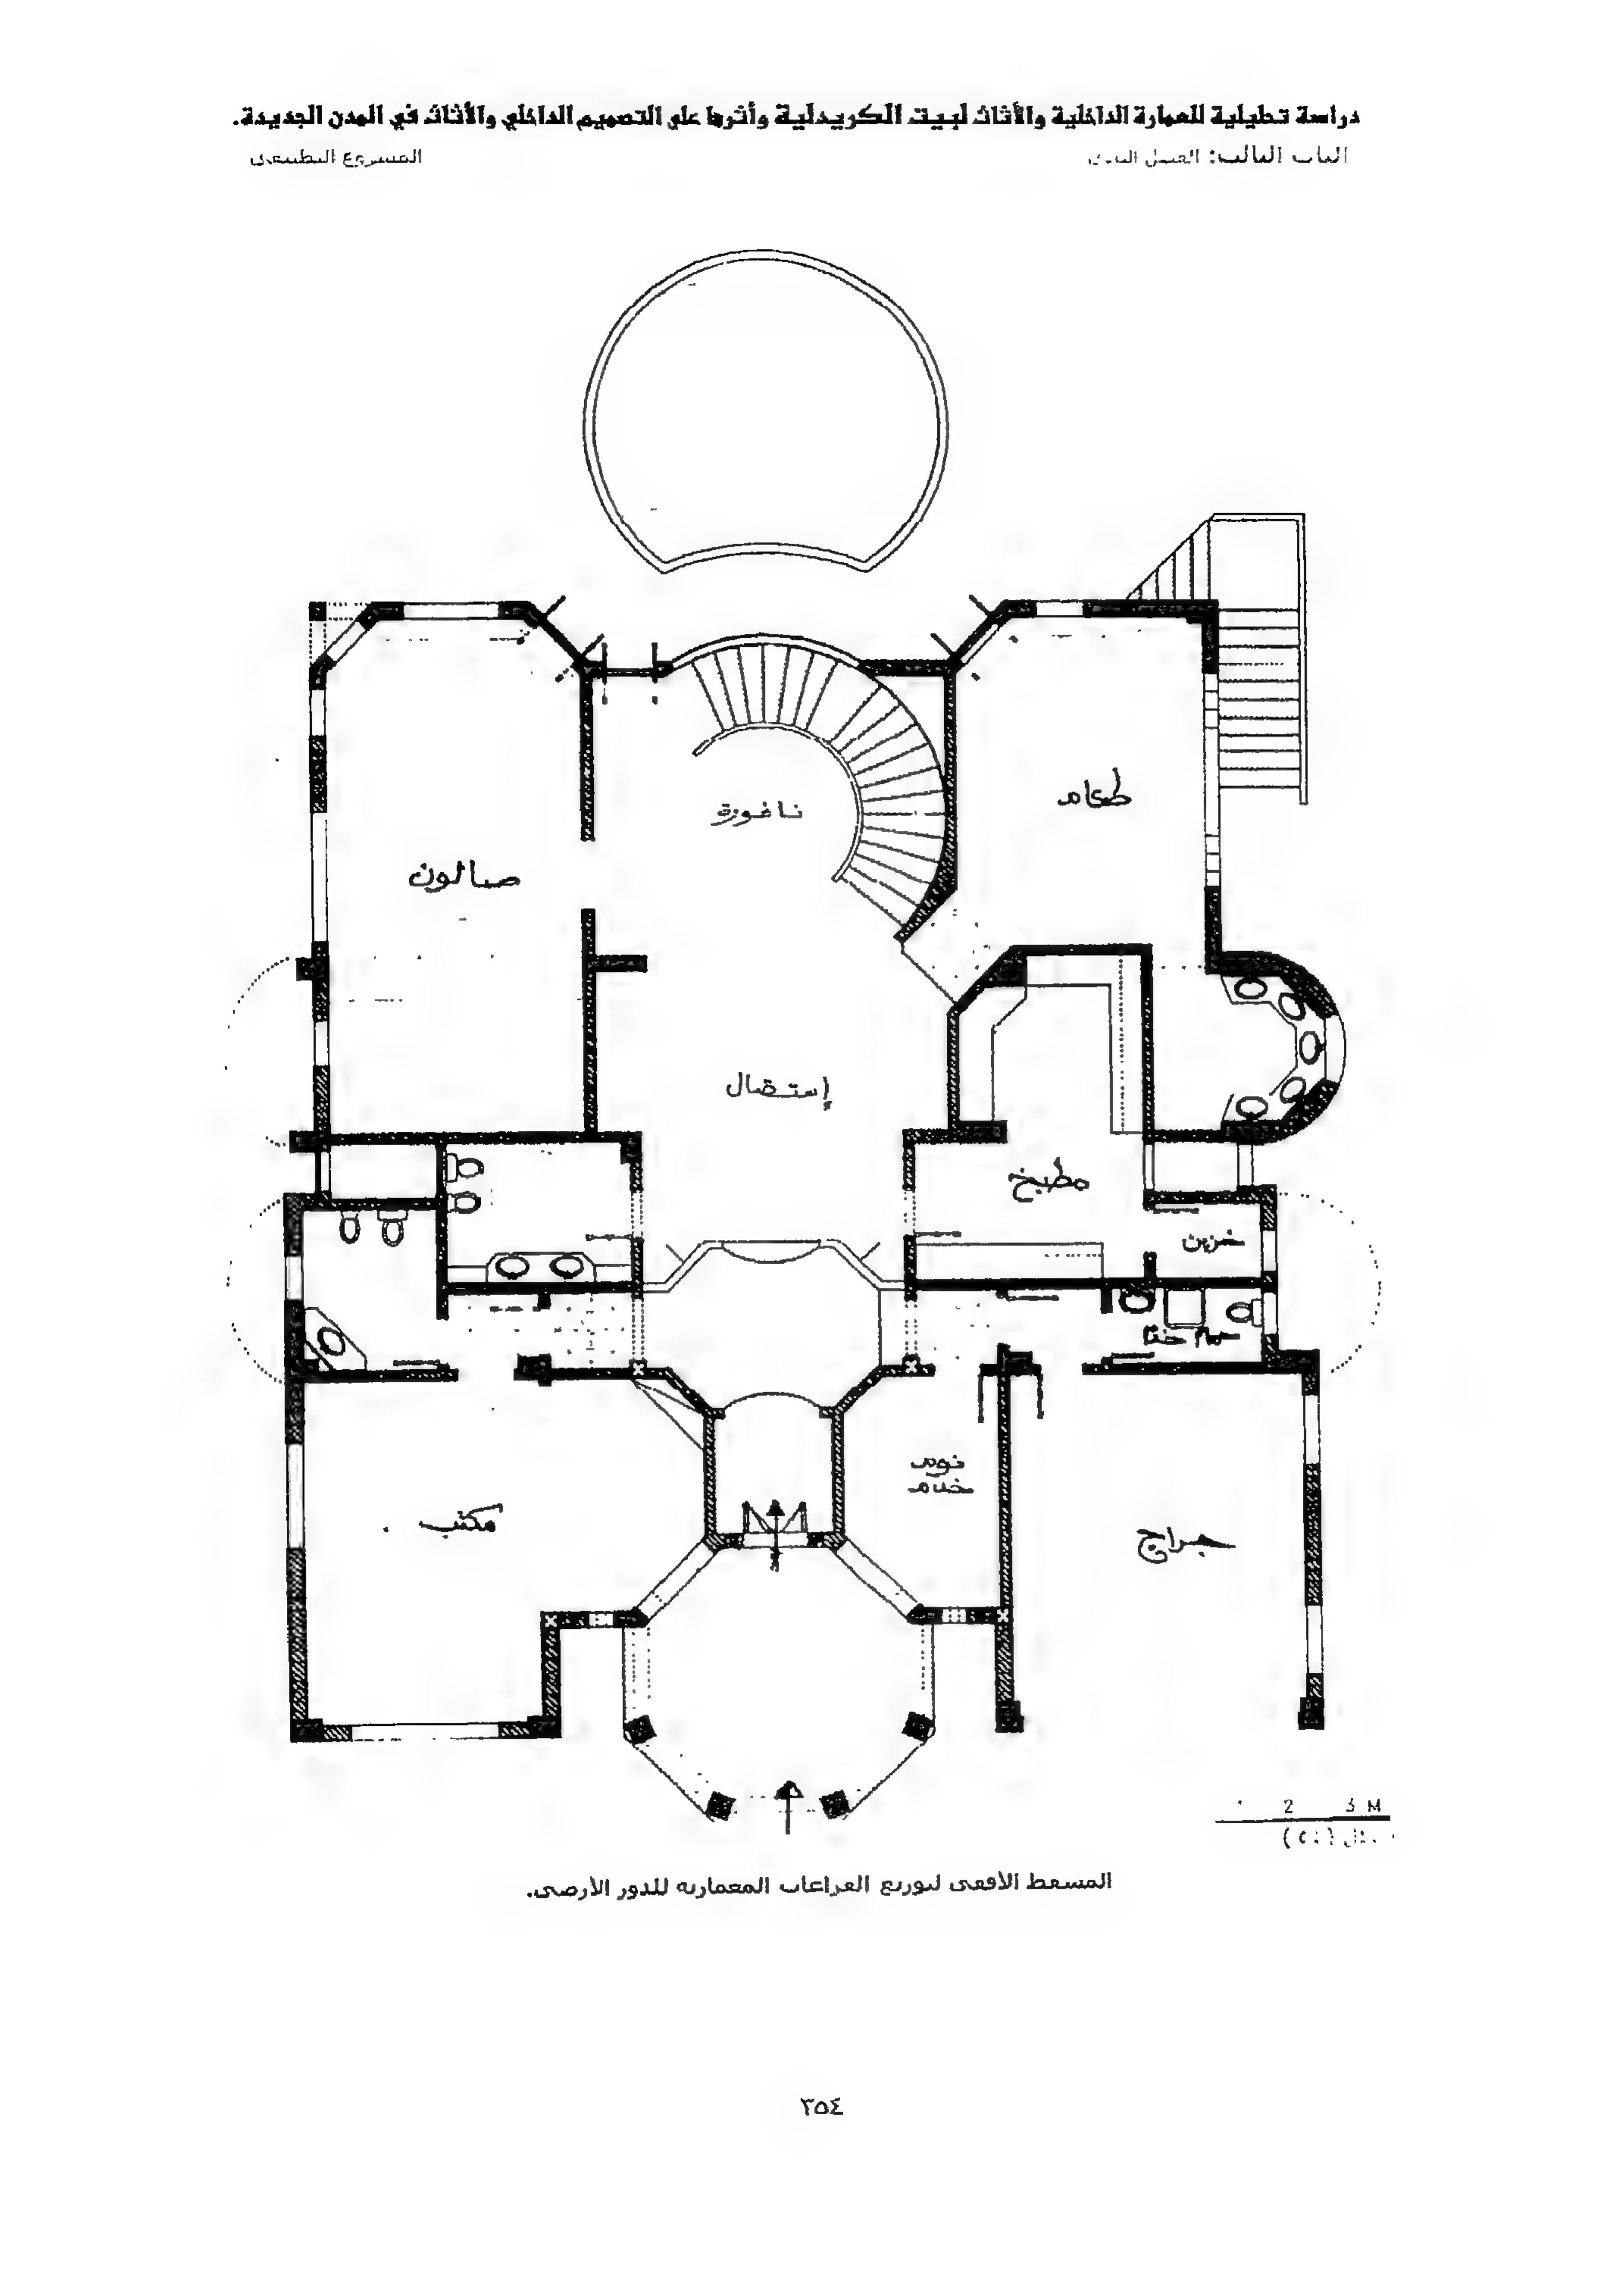 دراسة تحليلية للعمارة الداخلية والأثاث لبيت الكريدلية وأثرها على التصميم الداخلي والأثاث في المدن الجديدة.
الباب الثالث: الفصل الثانى
المشروع التطبيقى
طعام
نافورة
صالون
إستقبال
مطبخ
خزين
حمام
نوم
خدم
مكتب
جراج
2 3 M
المسقط الأفقى لتوزيع الفراغات المعمارية للدور الأرضى.
٢٥٤